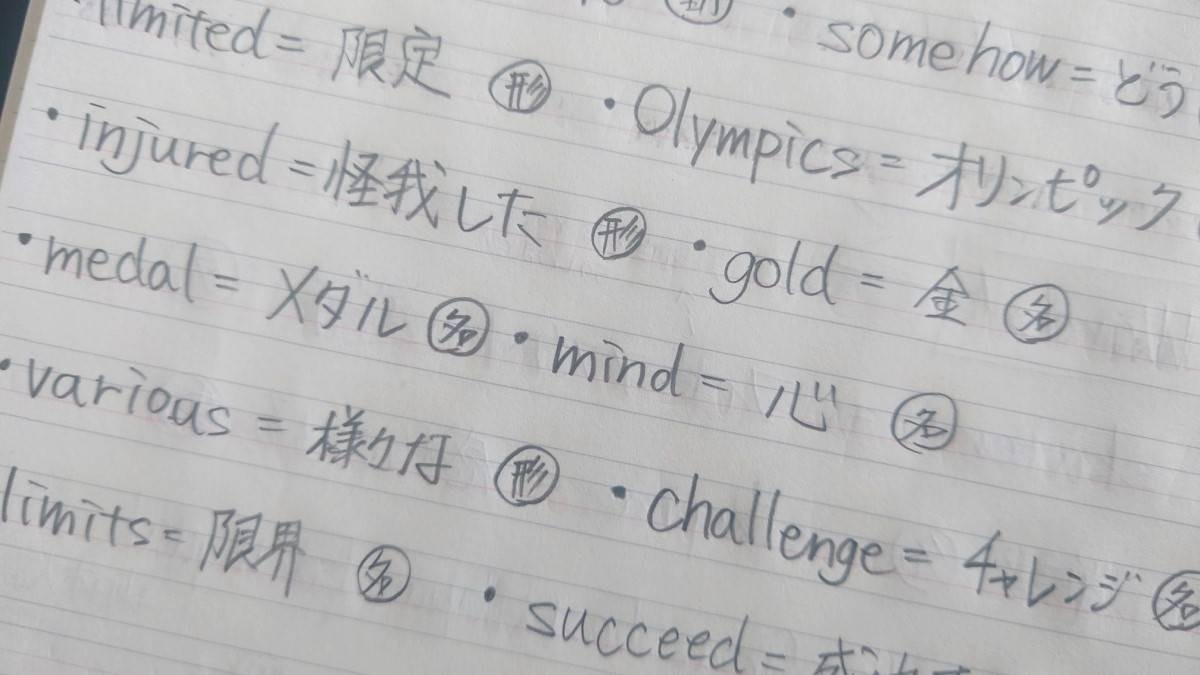 limited = 限定 形 ・somehow = どう
・injured = 怪我した 形 ・Olympics = オリンピック
・medal = メダル 名 ・gold = 金 名
・various = 様々な 形 ・mind = 心 名
limits = 限界 名 ・challenge = チャレンジ 名
・succeed =